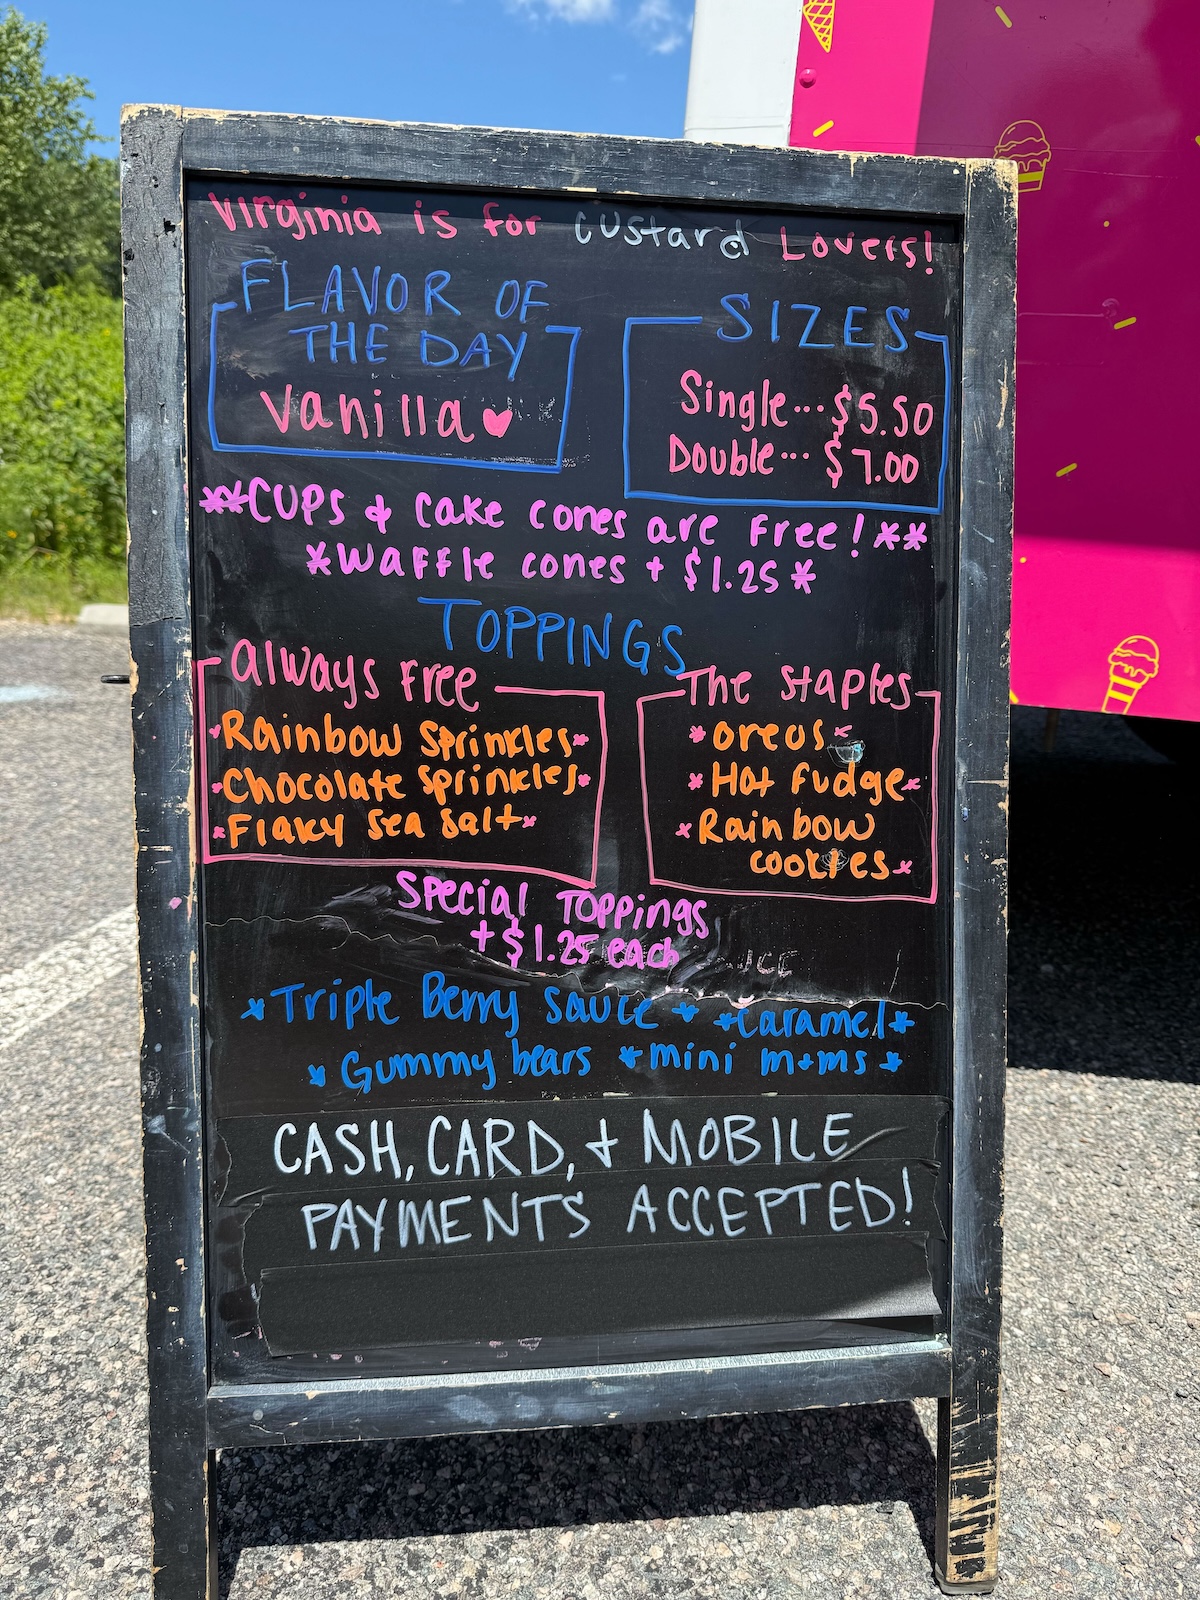 Virginia is for custard Lovers!
FLAVOR OF
THE DAY
Vanilla♥
SIZES
Single...$5.50
Double...$7.00
**CUPS & cake cones are Free!**
*Waffle cones + $1.25*
TOPPINGS
Always Free
*Rainbow Sprinkles*
*Chocolate Sprinkles*
*Flaky Sea Salt*
The Staples
*Oreos*
*Hot Fudge*
*Rainbow
cookies*
Special Toppings
+ $1.25 each
*Triple Berry Sauce * *Caramel*
*Gummy bears *mini m+ms *
CASH, CARD, + MOBILE
PAYMENTS ACCEPTED!